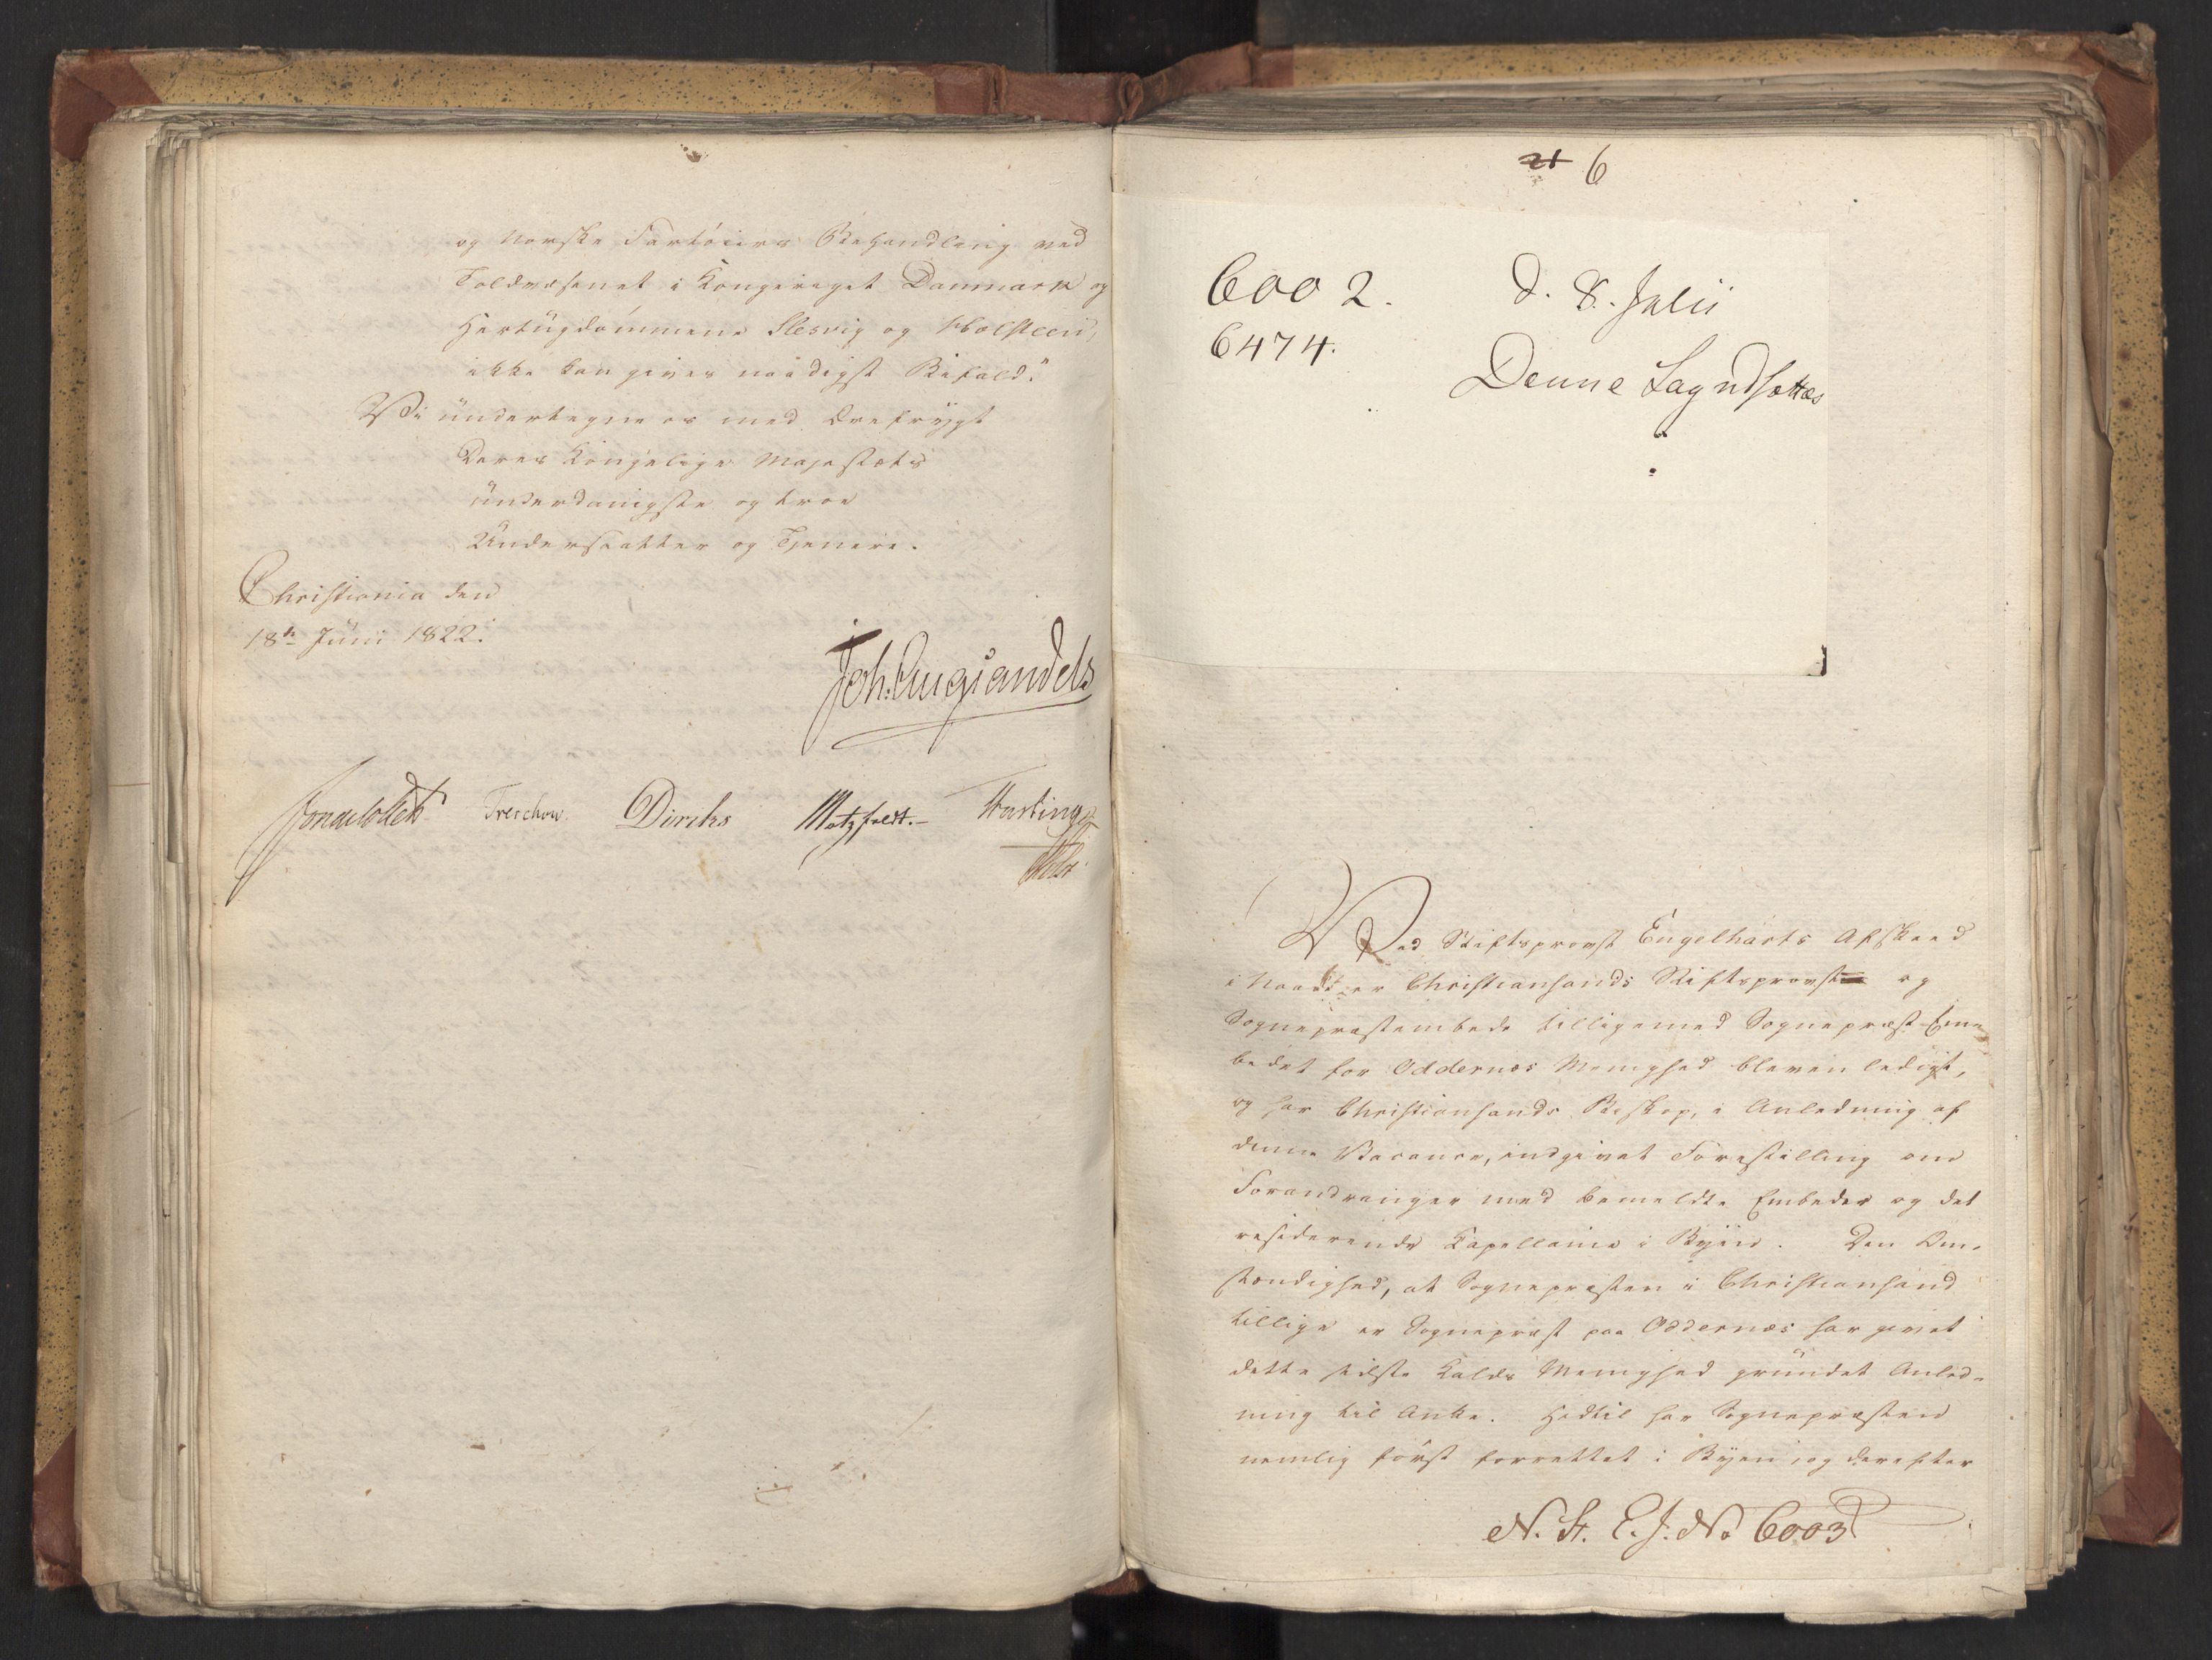 og norske Fartöiers Behandling ved
Toldvæsenet i Kongeriget Danmark og
Hertugdömmene Slesvig og Holsteen,
ikke kan gives naadigst Bifald."
Vi undertegne os med Ærefrygt
Deres Kongelige Majestæts
underdanigste og troe
Undersaatter og Tjenere.
Christiania den
18de Juni 1822.
Joh. Aug. Sandels
Sommerhielm Treschow. Diriks Motzfeldt. Fasting
21 6
6002. d. 8. Julii
6474.
Denne Sag udsættes
Ved Stiftsprovst Engelharts Afskeed
i Naade er Christiansands Stiftsprovst og
Sognepræstembede tilligemed Sognepræst-Em¬
bedet for Oddernes Menighed bleven ledigt,
og har Christiansands Biskop, i Anledning af
denne Vacance, indgivet Forestilling om
Forandringer med bemeldte Embeder og det
residerende Capellanie i Byen. Den Om¬
stændighed, at Sognepræsten i Christiansand
tillige er Sognepræst paa Oddernes har givet
dette sidste Kalds Menighed grundet Anled¬
ning til Anke. Hidtil har Sognepræsten
nemlig först forrettet i Byen, og derefter
N. St. E. J. No 6003